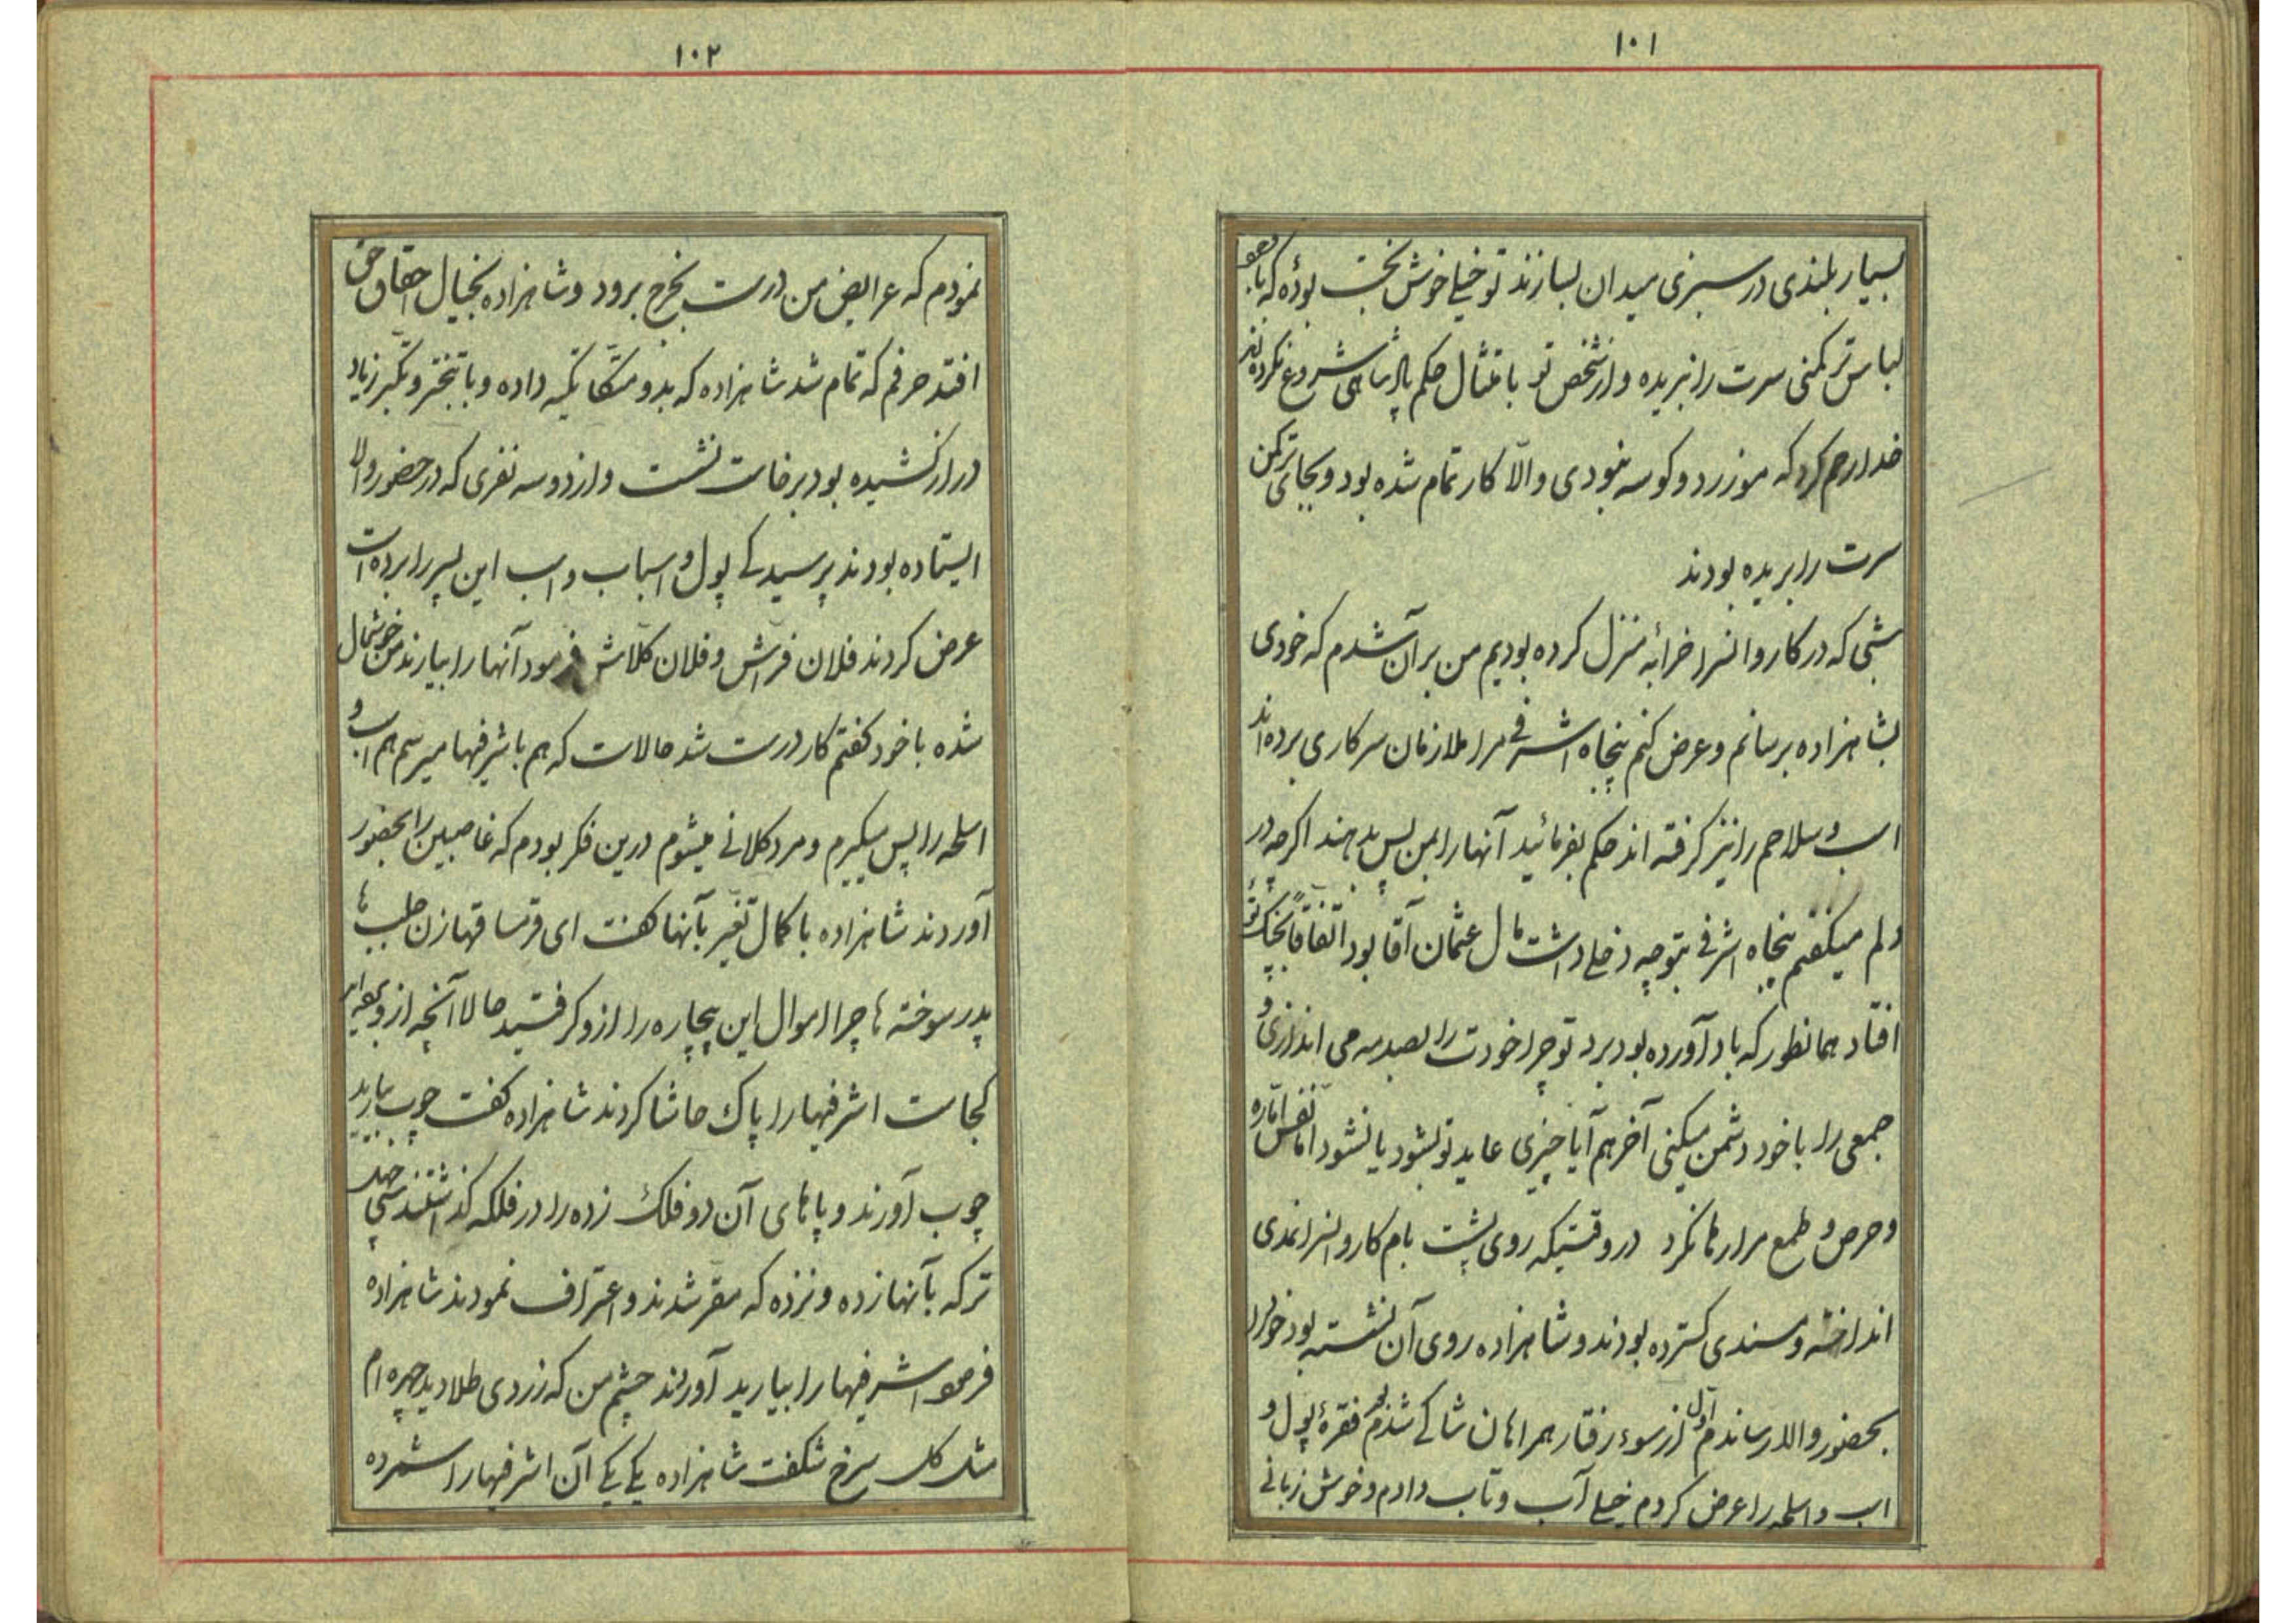 ۱۰۱
بسیار بلندی در سبزی میدان بسازند تو خیلی خوش بخت بودهٔ که با
لباس ترکمنی سرت را نبریده و از شخص تو بامتثال حکم پادشاهی شروع نکرده‌اند
خدا رحم کرد که موزرد و کوسه نبودی والّا کار تمام شده بود و بجای ترکمن
سرت را بریده بودند
شبی که در کاروانسرا خرابه منزل کرده بودیم من بر آن شدم که خودی
بشاهزاده برسانم و عرض کنم پنجاه اشرفی مرا ملازمان سرکاری برده‌اند
اسب و سلاحم را نیز گرفته اند حکم بفرمائید آنها را بمن پس بدهند اگرچه در
دلم میگفتم پنجاه اشرفی بتو چه دخلی داشت مال عثمان آقا بود اتفاقاً بچنگ تو
افتاد همانطور که باد آورده بود برد تو چرا خودت را بصدمه می اندازی و
جمعی را با خود دشمن میکنی آخر هم آیا چیزی عاید تو بشود یا نشود اما نفس امّاره
و حرص و طمع مرا رها نکرد در وقتیکه روی پشت بام کاروانسرا نمدی
انداخته و مسندی گسترده بودند و شاهزاده روی آن نشسته بود خود را
بحضور والا رساندم اول از سوء رفتار همراهان شاکی شدم فقرهٔ پول و
اسب و اسلحه را عرض کردم خیلی آب و تاب دادم و خوش زبانی
۱۰۲
نمودم که عرایض من درست بخرج برود و شاهزاده بخیال احقاق حق
افتد حرفم که تمام شد شاهزاده که بدو متکّا تکیه داده و با تبختر و تکبّر زیاد
دراز کشیده بود برخاست نشست و از دو سه نفری که در حضور والا
ایستاده بودند پرسید کی پول و اسباب و اسب این پسر را برده است
عرض کردند فلان فرّاش و فلان کلاش فرمود آنها را بیارند من خوشحال
شده با خود گفتم کار درست شد حالاست که هم باشرفیها میرسم هم اسب و
اسلحه را پس میگیرم و مرد کلانی میشوم درین فکر بودم که غاصبین را بحضور
آوردند شاهزاده با کمال تغیّر بآنها گفت ای قرمساقها زن جلب ها
پدر سوخته ها چرا اموال این بیچاره را ازو گرفتید حالا آنچه ازو
کجاست اشرفیها را پاک حاشا کردند شاهزاده گفت چوب بیارید
چوب آورند و پاهای آن دو فلک زده را در فلکه گذاشتند سی چهل
ترکه بآنها زده و نزده که مقرّ شدند و اعتراف نمودند شاهزاده
فرمود اشرفیها را بیارید آورند چشم من که زردی طلا دید چهره ام
مثل گل سرخ شکفت شاهزاده یکی یکی آن اشرفیها را شمرده